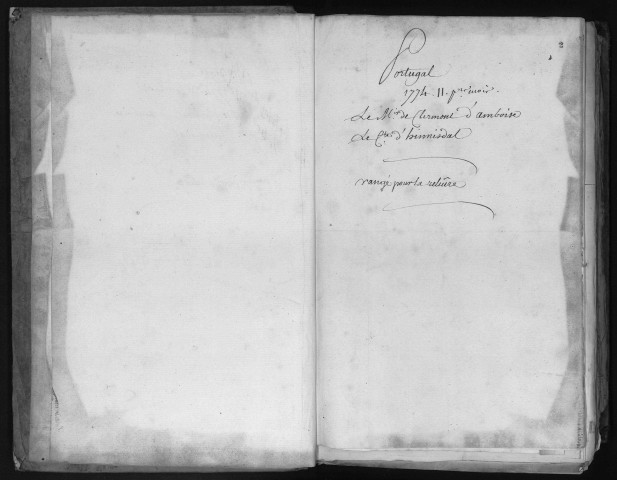 Portugal
1774. 11. prs mois.
Le Mis. de Clermont d'amboise
Le Cte. d'hennisdal
rangé pour la reliûre